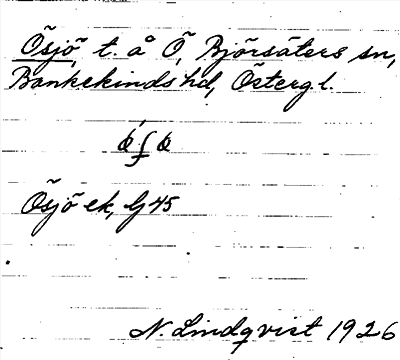 Ösjö, t. å Ö, Björsäters sn,
Bankekinds hd, Östergl.
Ösjö ek, G 45
N. Lindqvist 1926